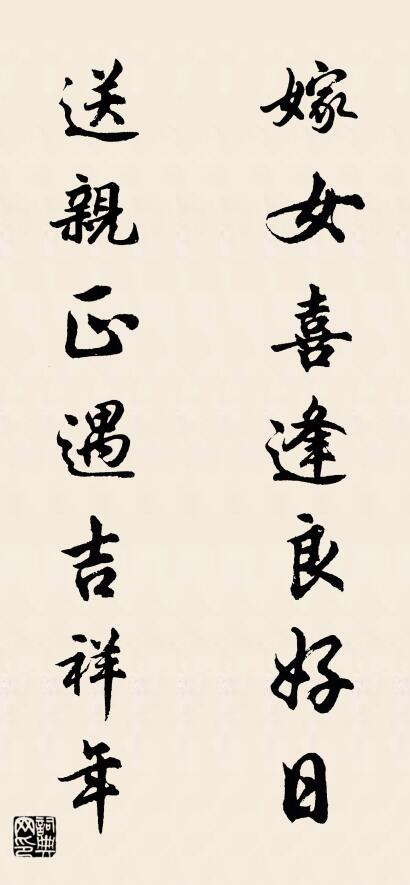 嫁女喜逢良好日
送親正遇吉祥年
詞典网印